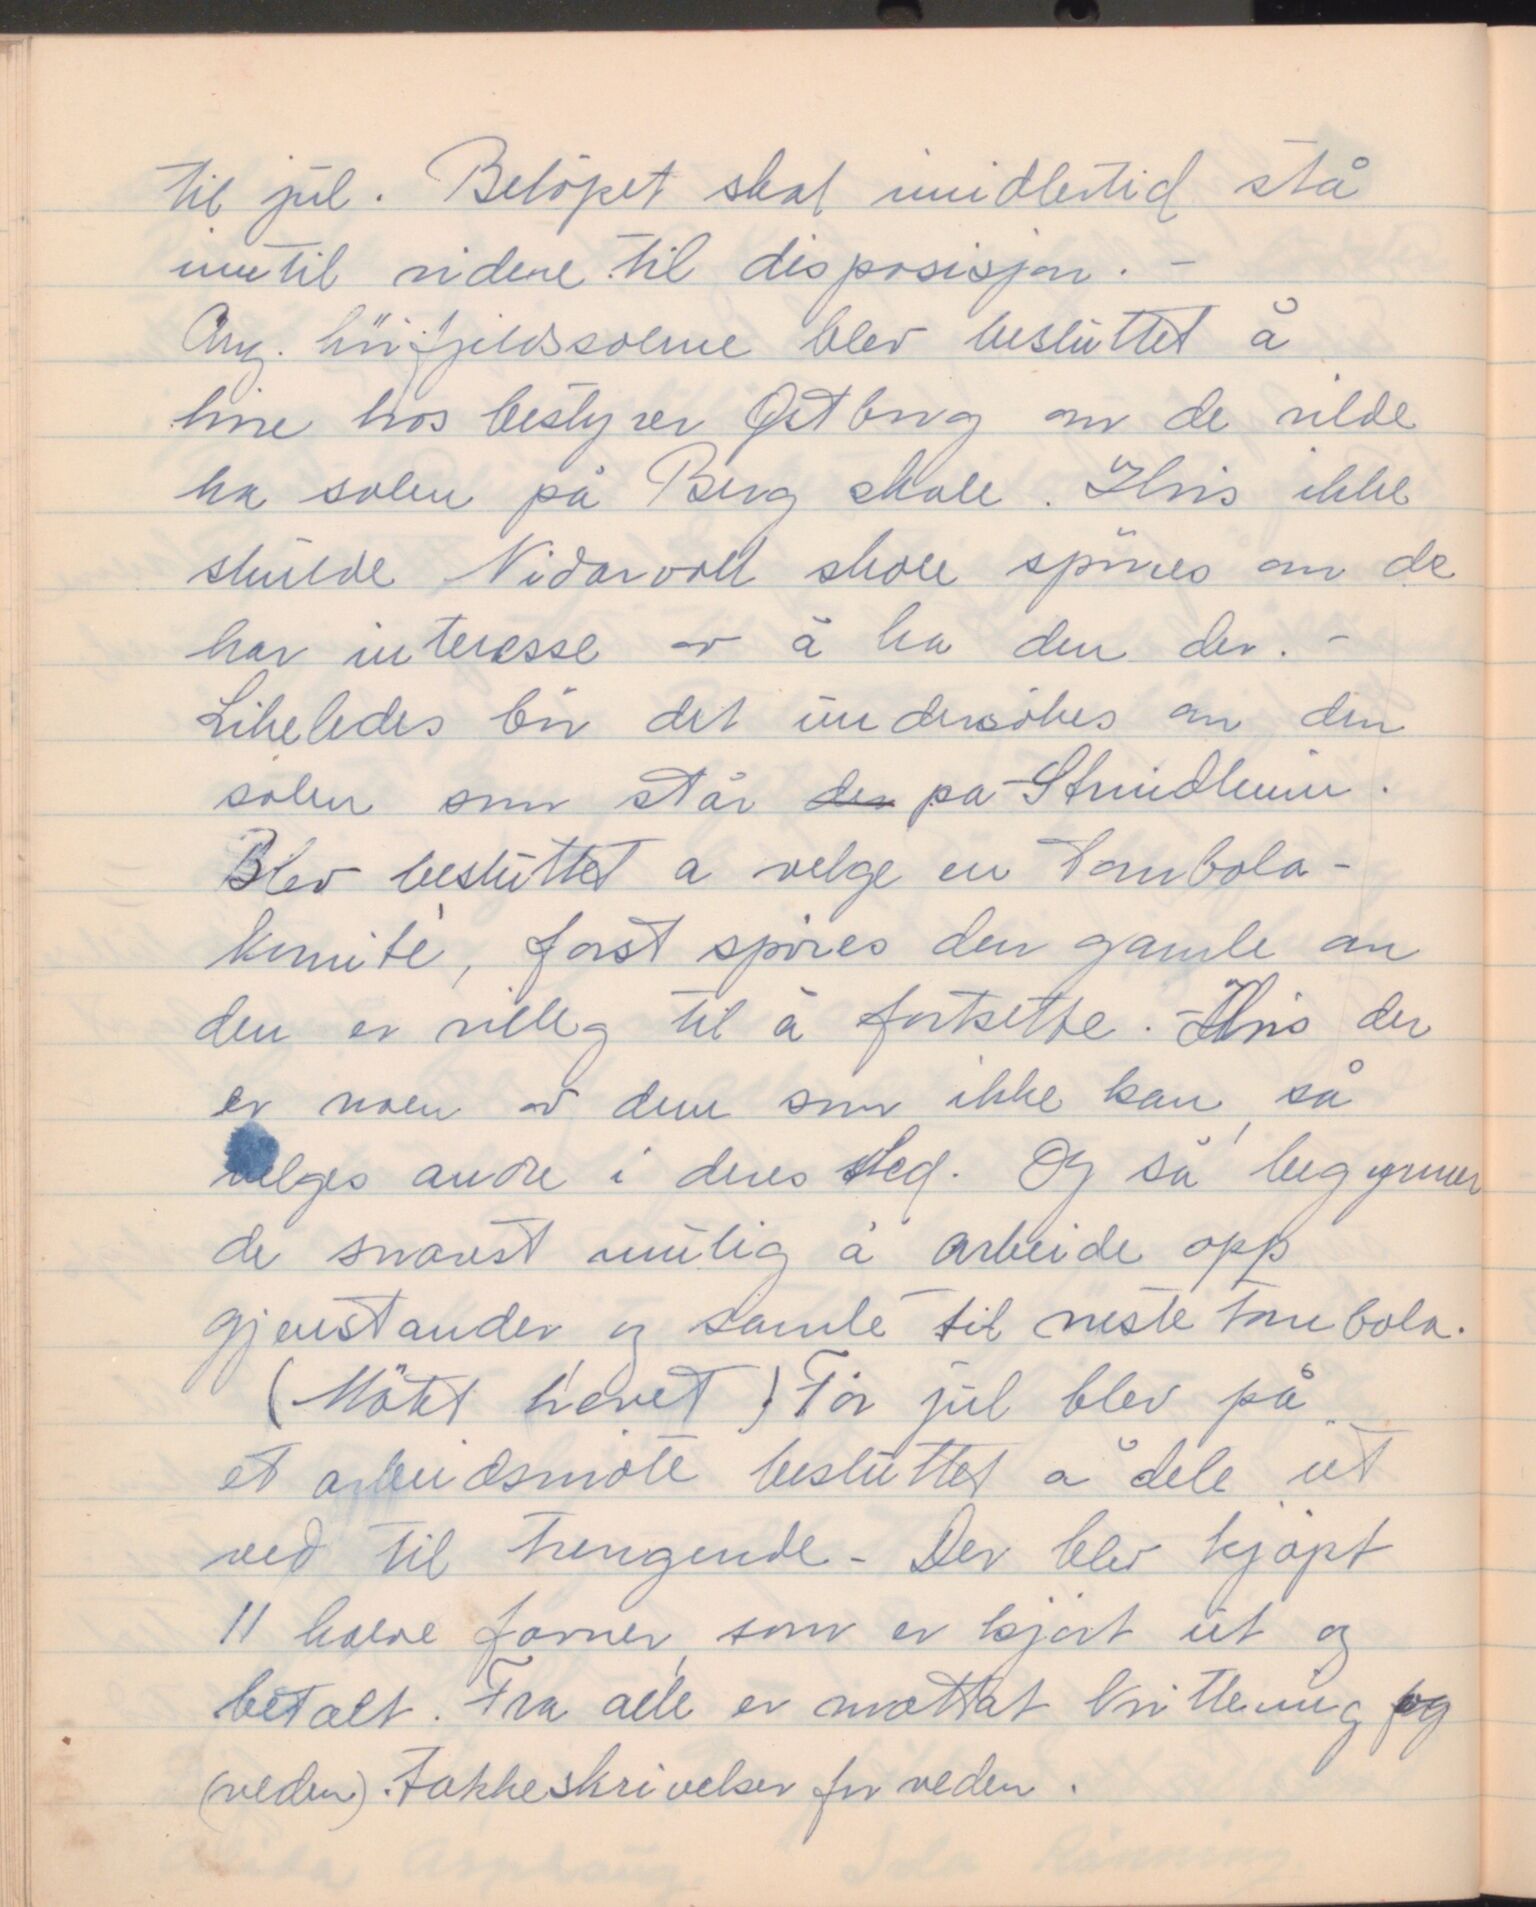 til jul. Beløpet skal imidlertid stå
inntil videre til disposisjon. -
Ang. höifjeldssolene blev besluttet å
høre hos bestyrer Östborg om de vilde
ha solen på Berg skole. Hvis ikke
skulde Nidarvoll skole spörres om de
har interesse av å ha den der. -
Likeledes bör det undersökes om den
solen som står der på Strindheim.
Blev besluttet a velge en Tombola-
komité, først spörres den gamle om
den er villig til å fortsette. - Hvis der
er noen av dem som ikke kan, så
velges andre i deres sted. Og så begynner
de snarest mulig å arbeide opp
gjenstander og samle til neste Tombola.
(Mötet hevet) För jul blev på
et arbeidsmöte besluttet å dele ut
ved til trengende - Der blev kjöpt
11 halve favner, som er kjört ut og
betalt. Fra alle er mottat kvittering og
(veden). Takkeskrivelser for veden.